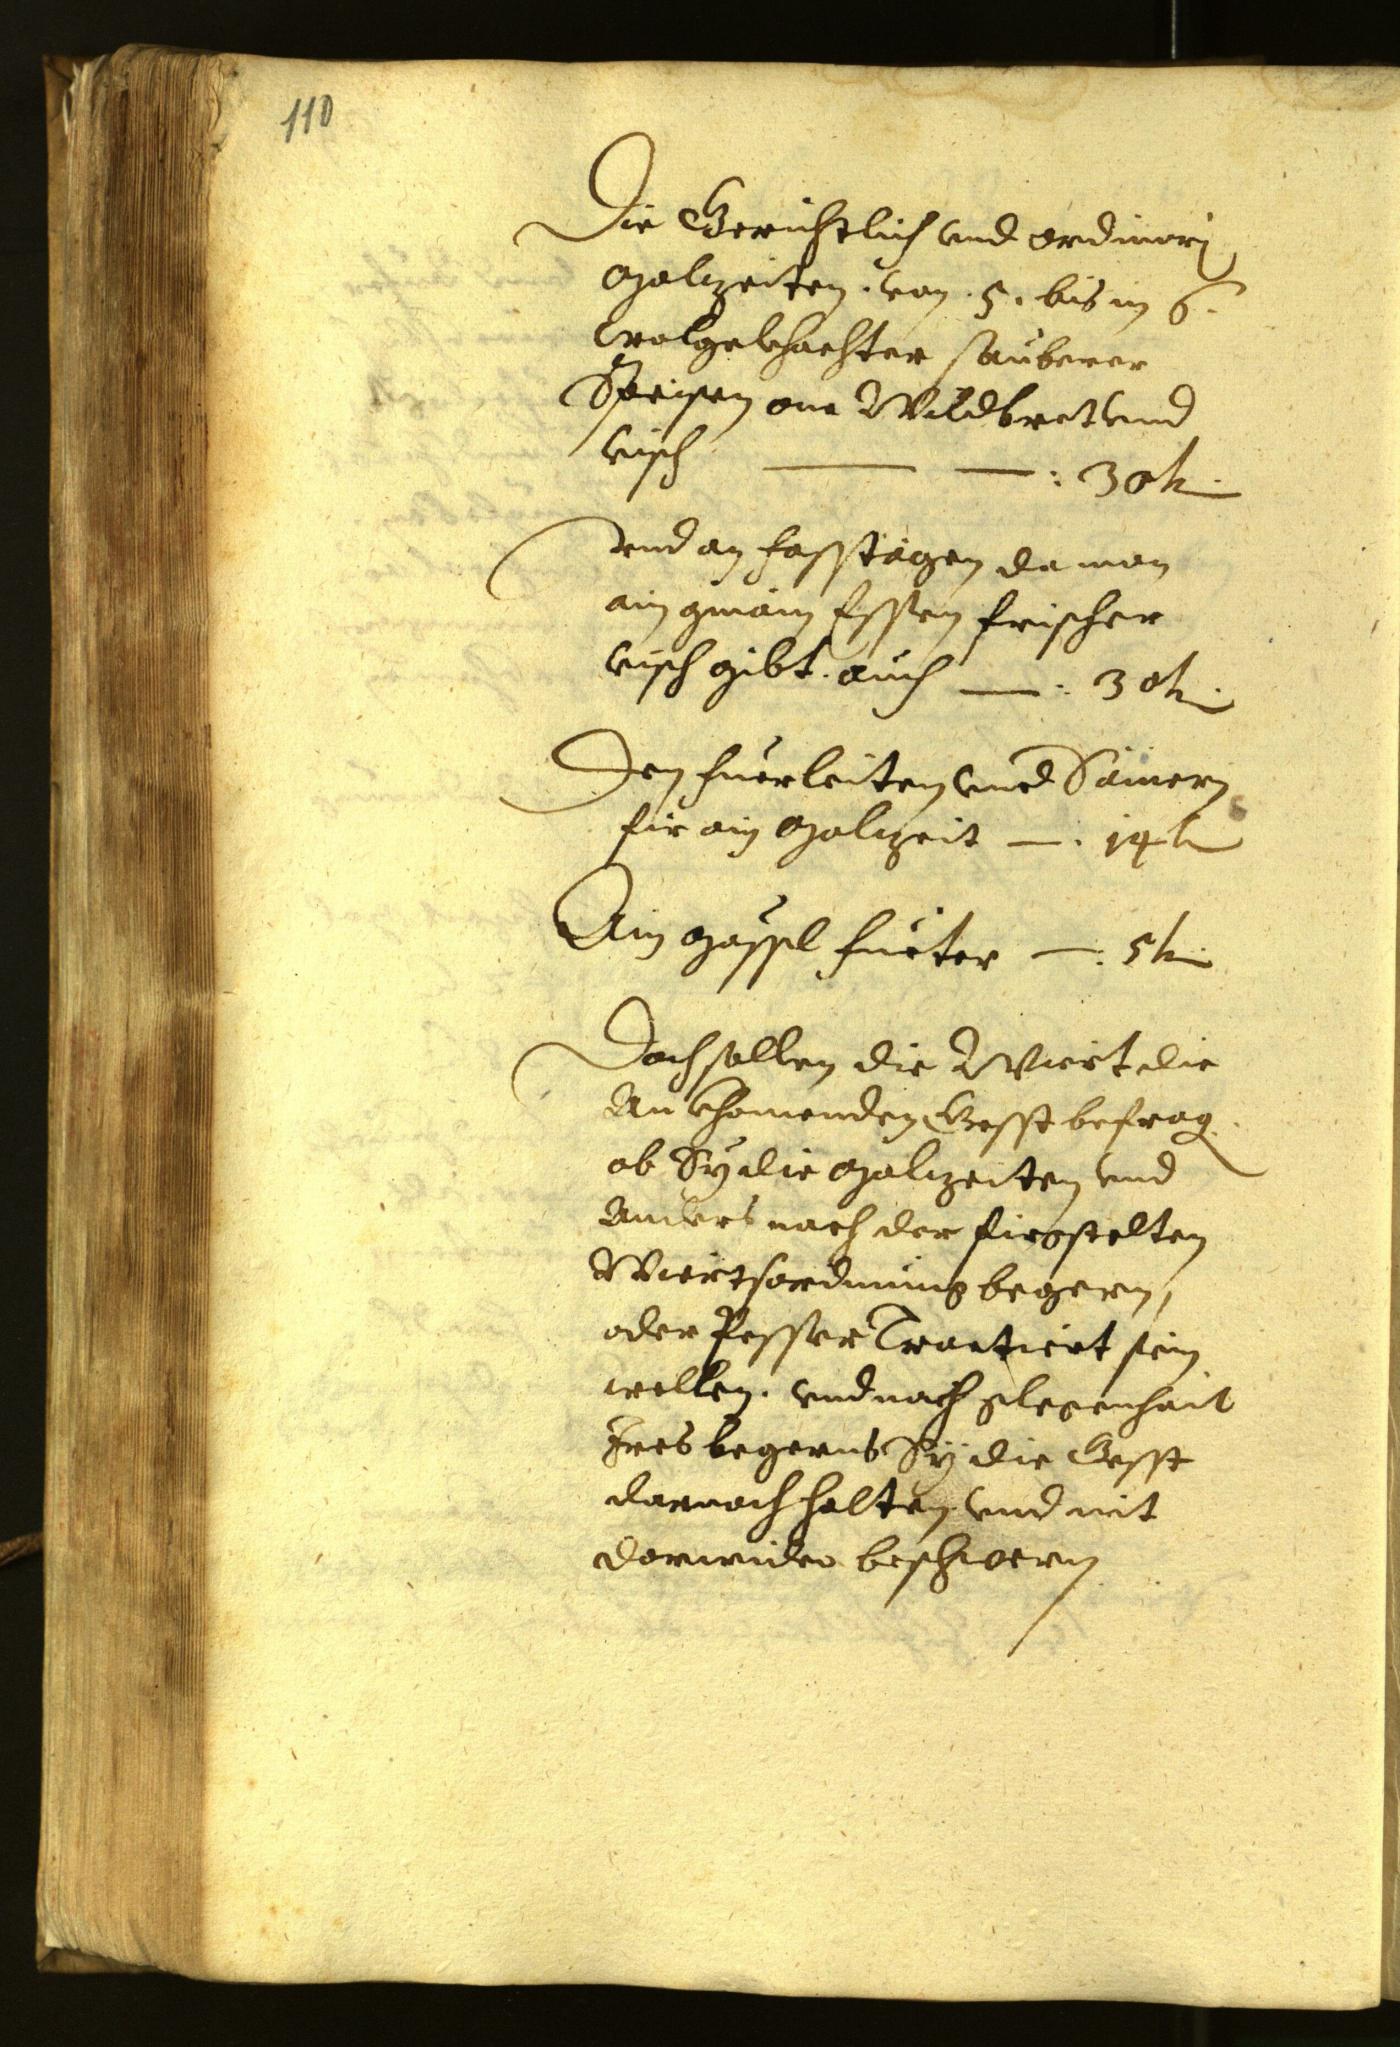 110
Die Gerichtlich und ordinari
Malzeiten. von .5. bis in 6.
wolgekhochter sauberer
Speisen one Wildbret und
visch — — : 30 k.
Und an fasstagen da man
ain gmain Essen frischer
visch gibt. auch — : 30 k.
Den fuerleiten und Sämern
fir ain Malzeit — : 14 k
Ain Mässl fueter — : 5 k.
Doch sollen die Wiert die
An khomenden Gesst befrag
ob Sy die Malzeiten und
Anders nach der firgstelten
Wiertsordnung begern,
oder Pesser Tractiert sein
wellen. und nach glegenhait
Ires begerns Sy die Gesst
darnach halten und nit
darwider beschwern